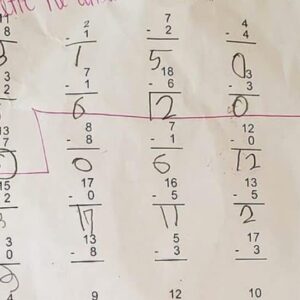 2 7 4
8 - 1 - 2 - 4
1 5 0
3 7 18 3
2 - 1 - 6 - 3
6 2 0
13 8 7 12
7 - 8 - 1 - 0
0 6 12
15 17 16 13
2 - 0 - 5 - 5
17 11 2
3 13 5 17
0 - 8 - 3 - 3
9 12 10